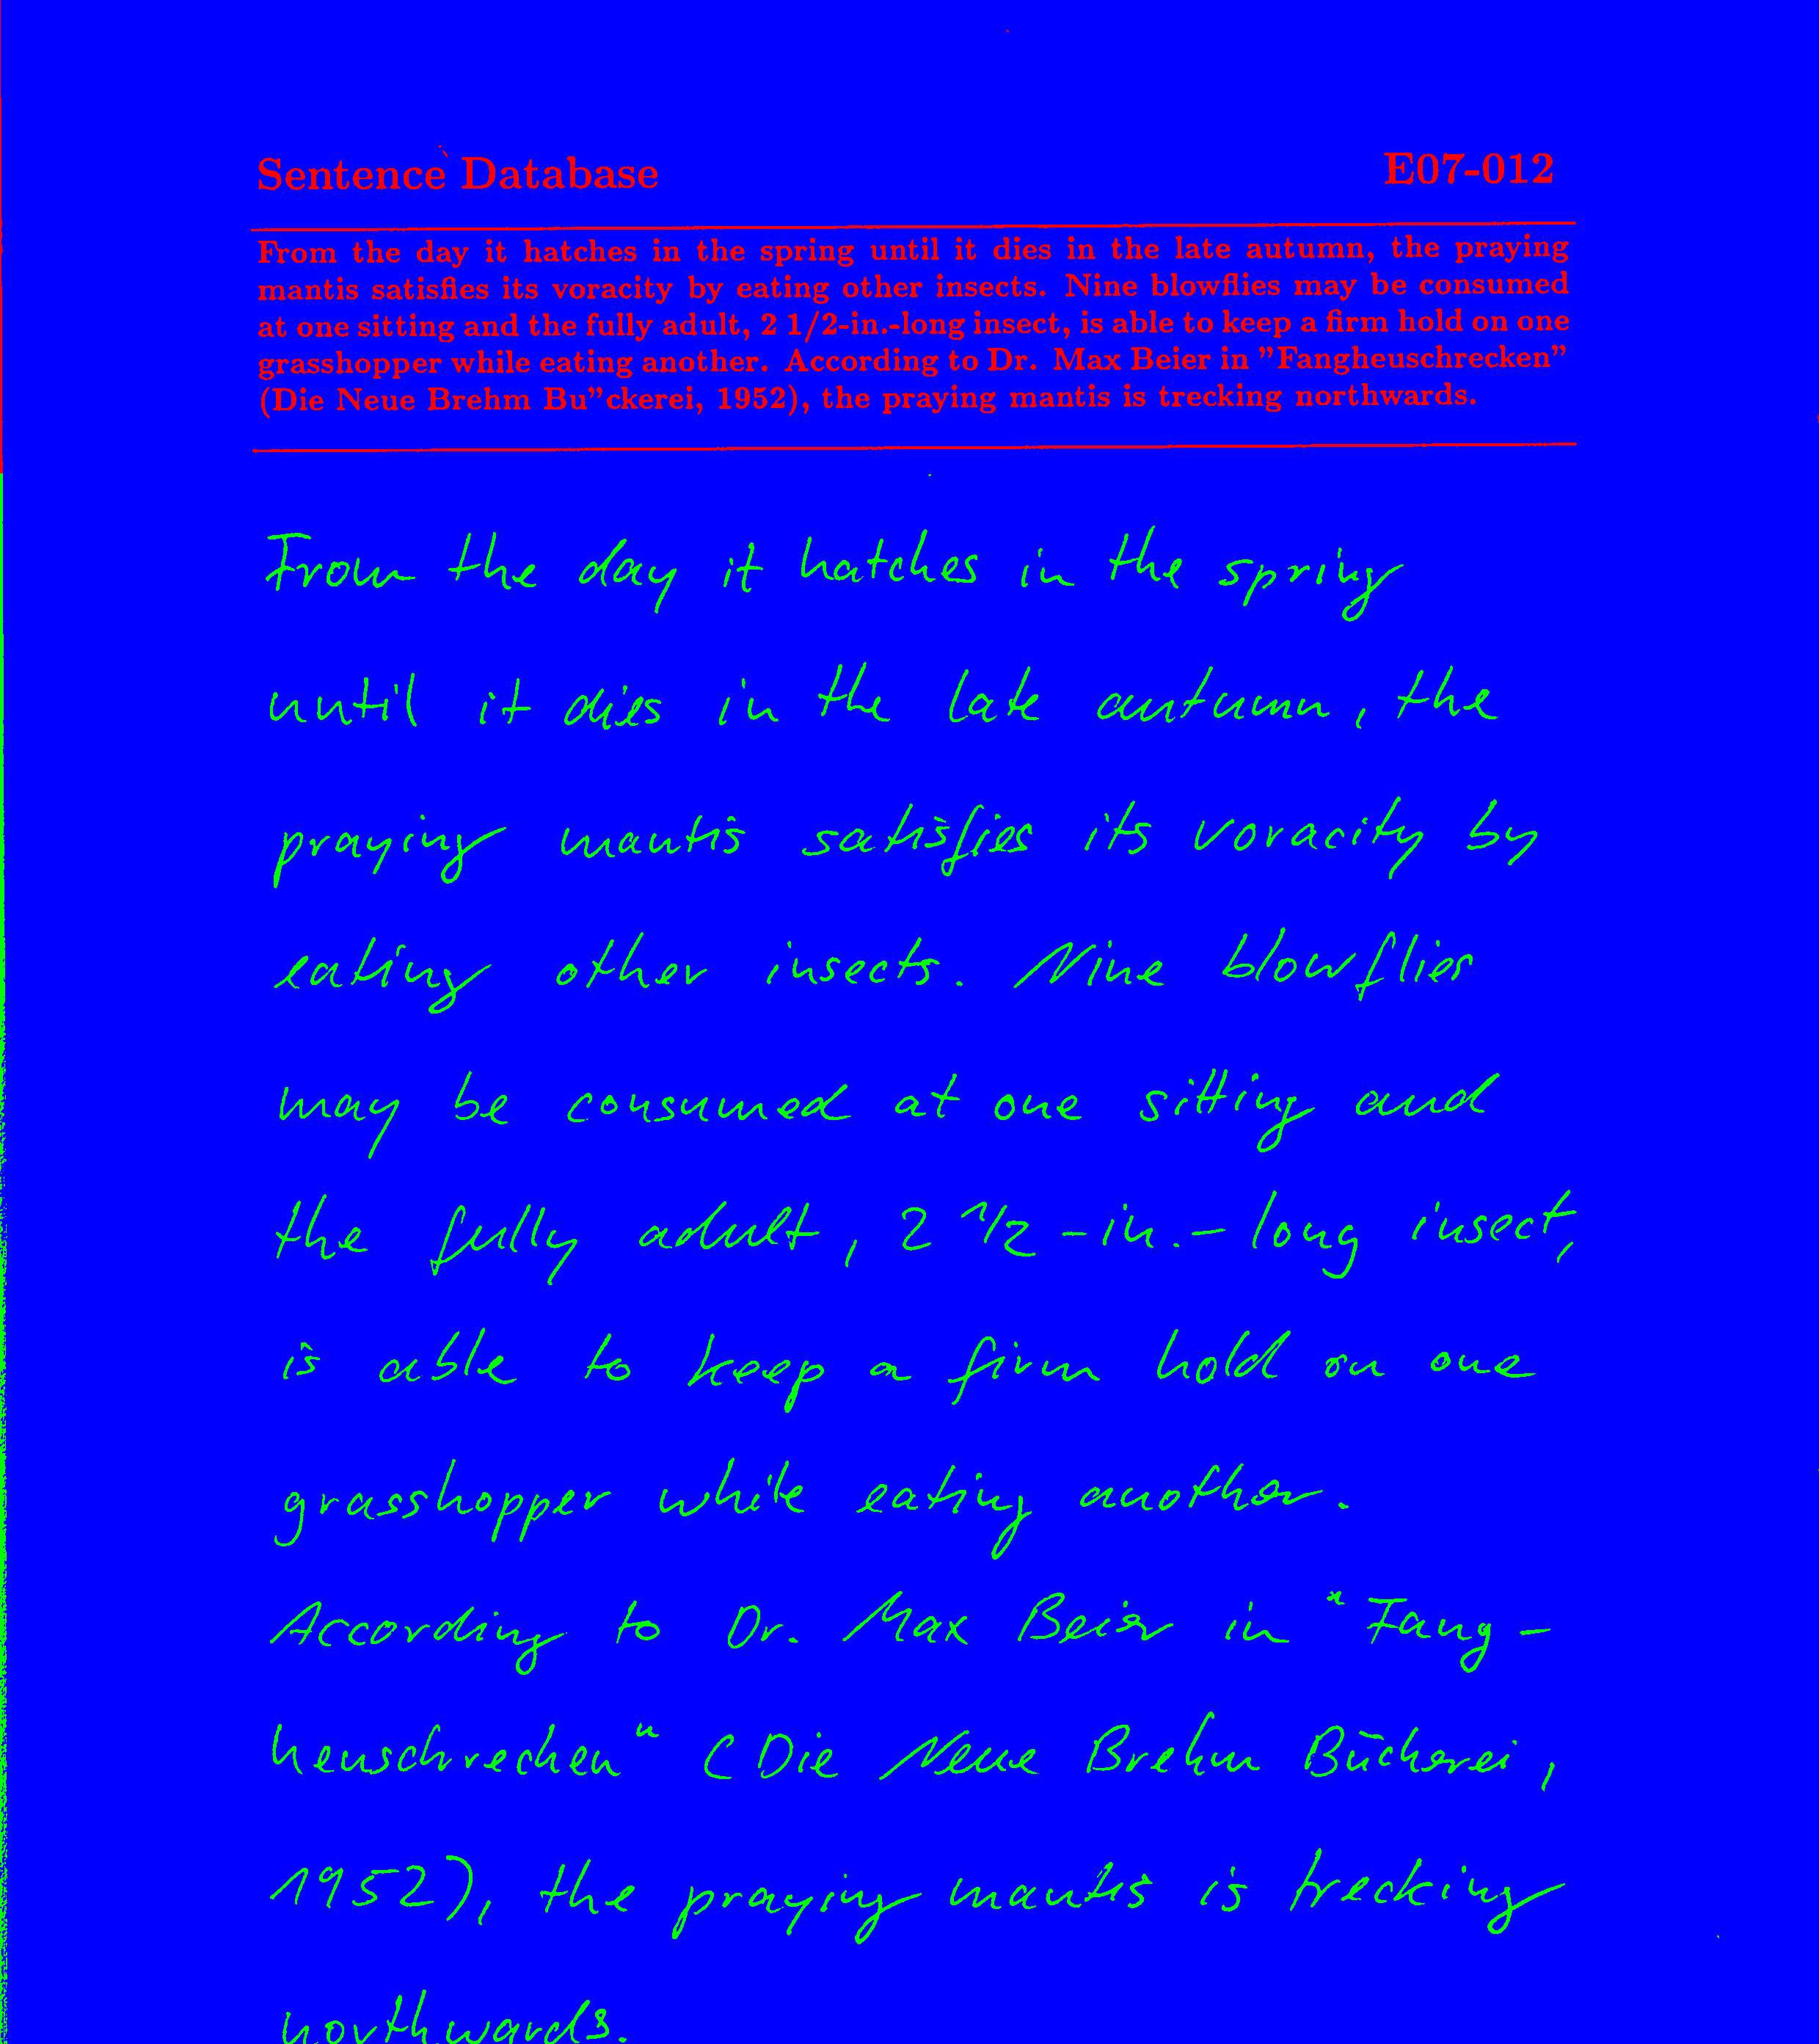 Sentence Database E07-012
From the day it hatches in the spring until it dies in the late autumn, the praying
mantis satisfies its voracity by eating other insects. Nine blowflies may be consumed
at one sitting and the fully adult, 2 1/2-in.-long insect, is able to keep a firm hold on one
grasshopper while eating another. According to Dr. Max Beier in "Fangheuschrecken"
(Die Neue Brehm Bu"ckerei, 1952), the praying mantis is trecking northwards.
From the day it hatches in the spring
until it dies in the late autumn, the
praying mantis satisfies its voracity by
eating other insects. Nine blowflies
may be consumed at one sitting and
the fully adult, 2 1/2-in.-long insect,
is able to keep a firm hold on one
grasshopper while eating another.
According to Dr. Max Beier in "Fang-
heuschrecken" (Die Neue Brehm Bücherei,
1952), the praying mantis is trecking
northwards.